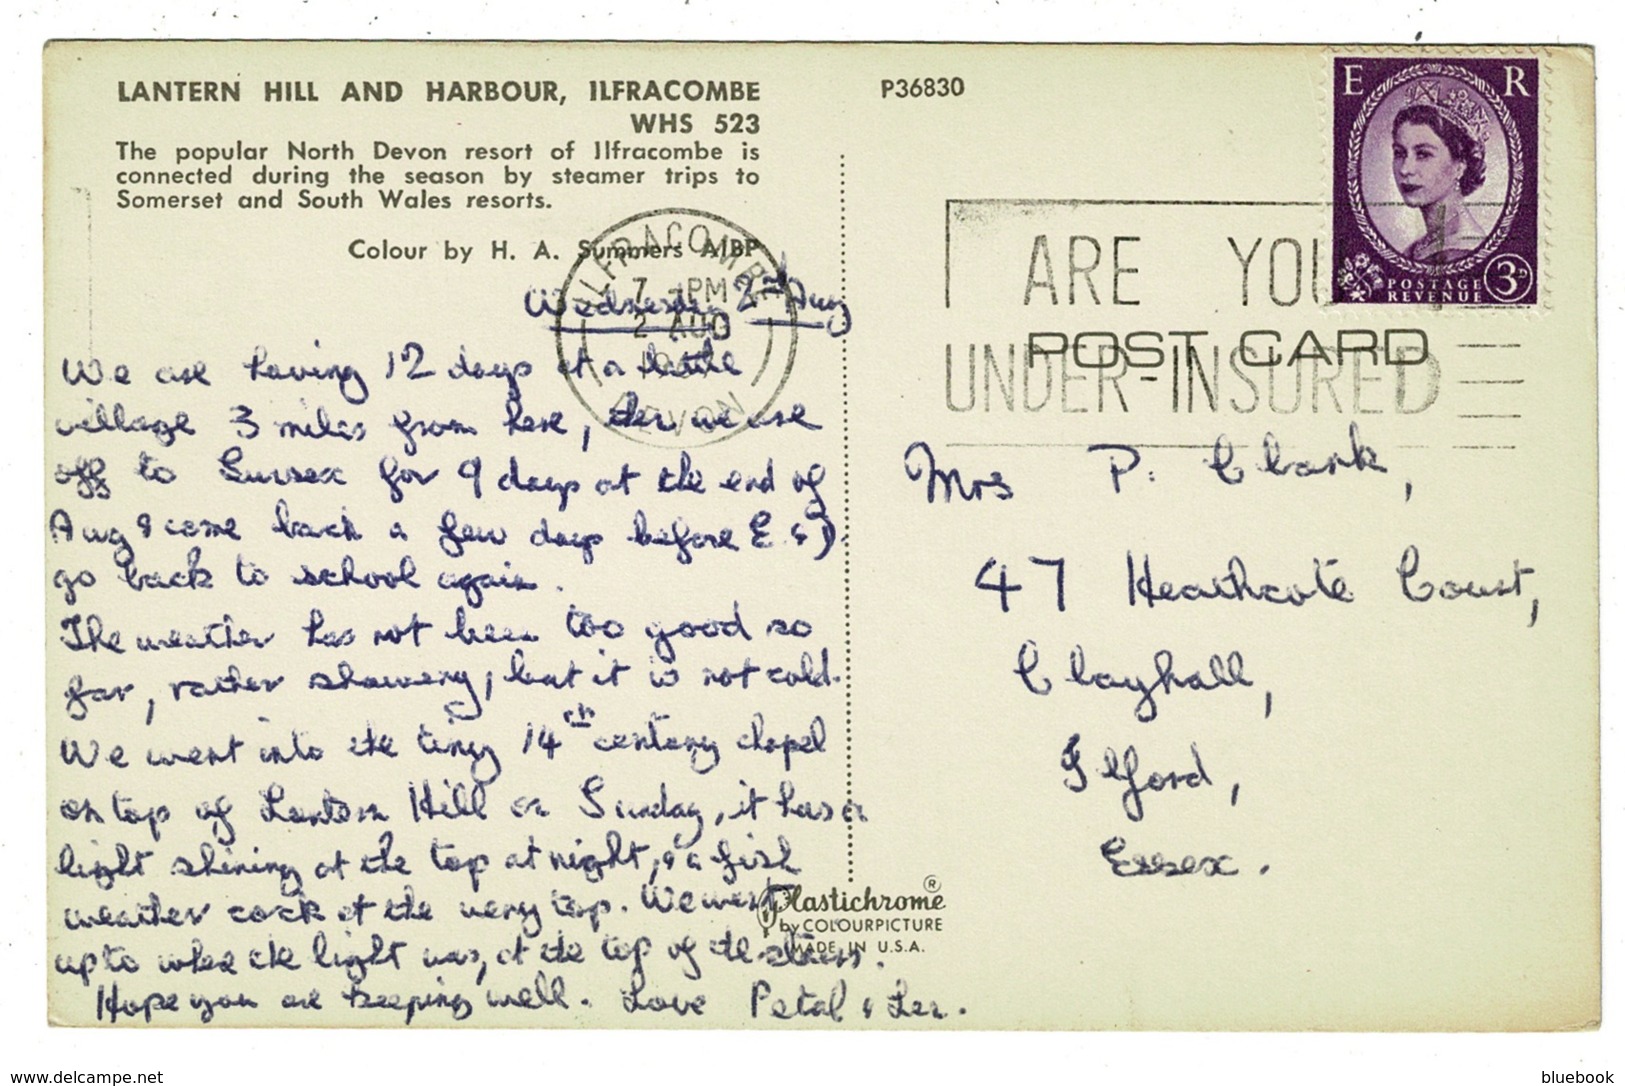 LANTERN HILL AND HARBOUR, ILFRACOMBE
WHS 523
The popular North Devon resort of Ilfracombe is
connected during the season by steamer trips to
Somerset and South Wales resorts.
Colour by H. A. Summers AIBP
Wednesday 2nd Aug
We are having 12 days at a little
village 3 miles from here, then we are
off to Sussex for 9 days at the end of
Aug & come back a few days before E & D
go back to school again.
The weather has not been too good so
far, rather showery, but it is not cold.
We went into the tiny 14th century chapel
on top of Lantern Hill on Sunday, it has a
light shining at the top at night, & a fish
weather cock at the very top. We went
up to where the light was, at the top of the stairs.
Hope you are keeping well. Love Petal & Les.
P36830
E R
POSTAGE
REVENUE
3D
ILFRACOMBE
7 - PM
2 AUG
DEVON
ARE YOU
UNDER-INSURED
POST CARD
Mrs P. Clark,
47 Heathcote Court,
Clayhall,
Ilford,
Essex.
Plastichrome ®
by COLOURPICTURE
MADE IN U.S.A.
www.delcampe.net
bluebook